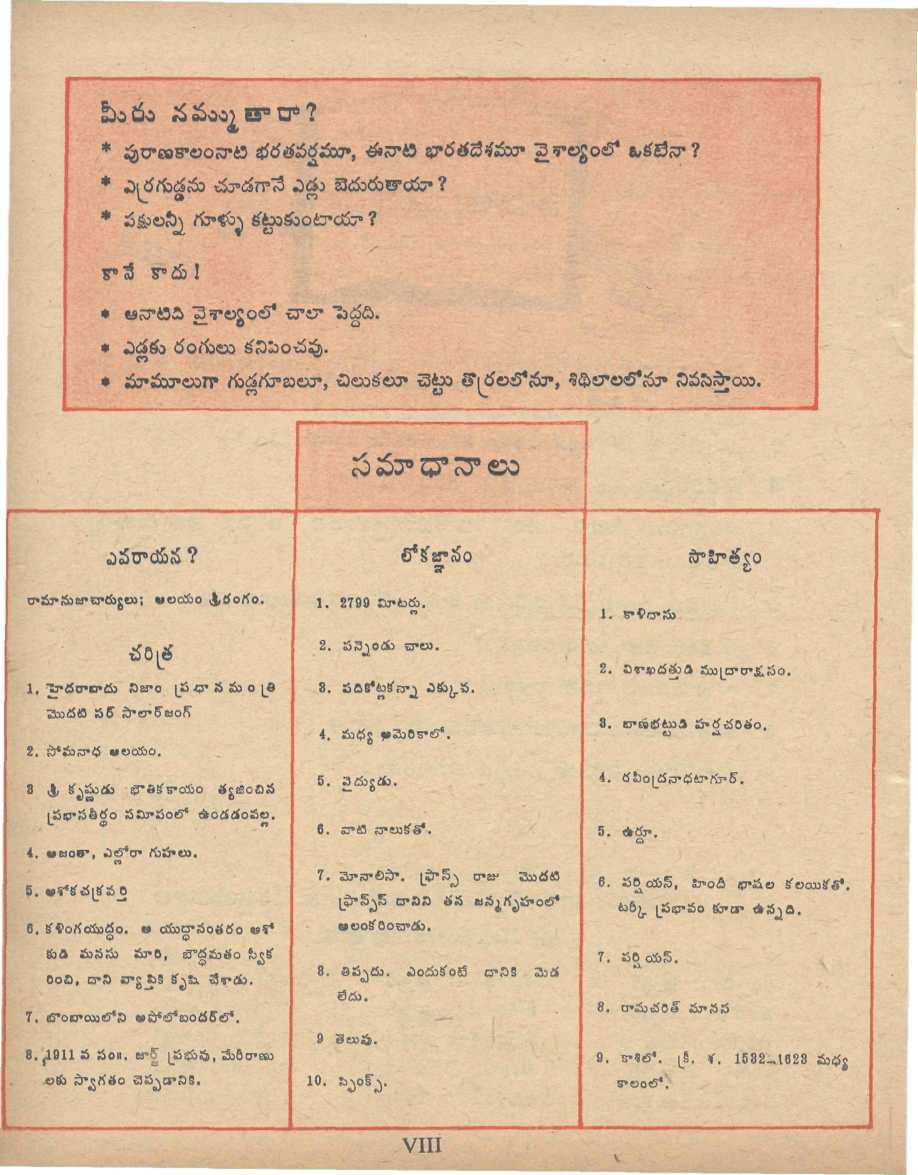 మీరు నమ్ముతారా?
* పురాణకాలంనాటి భరతవర్షమూ, ఈనాటి భారతదేశమూ వైశాల్యంలో ఒకటేనా?
* ఎర్రగుడ్డను చూడగానే ఎడ్లు బెదురుతాయా?
* పక్షులన్నీ గూళ్ళు కట్టుకుంటాయా?
కానే కాదు!
* ఆనాటిది వైశాల్యంలో చాలా పెద్దది.
* ఎడ్లకు రంగులు కనిపించవు.
* మామూలుగా గుడ్లగూబలూ, చిలుకలూ చెట్టు తొర్రలలోనూ, శిథిలాలలోనూ నివసిస్తాయి.
సమాధానాలు
ఎవరాయన?
రామానుజాచార్యులు; ఆలయం శ్రీరంగం.
చరిత్ర
1. హైదరాబాదు నిజాం ప్రధానమంత్రి
మొదటి సర్ సాలార్‌జంగ్
2. సోమనాధ ఆలయం.
3 శ్రీ కృష్ణుడు భౌతికకాయం త్యజించిన
ప్రభాసతీర్థం సమీపంలో ఉండడంవల్ల.
4. అజంతా, ఎల్లోరా గుహలు.
5. అశోకచక్రవర్తి
6. కళింగయుద్ధం. ఆ యుద్ధానంతరం అశో
కుడి మనసు మారి, బౌద్ధమతం స్వీక
రించి, దాని వ్యాప్తికి కృషి చేశాడు.
7. బొంబాయిలోని అపోలోబందర్‌లో.
8. 1911 వ సం॥. జార్జ్ ప్రభువు, మేరీరాణు
లకు స్వాగతం చెప్పడానికి.
లోకజ్ఞానం
1. 2799 మీటర్లు.
2. పన్నెండు చాలు.
3. పదికోట్లకన్నా ఎక్కువ.
4. మధ్య అమెరికాలో.
5. వైద్యుడు.
6. వాటి నాలుకతో.
7. మోనాలిసా. ఫ్రాన్స్ రాజు మొదటి
ఫ్రాన్సిస్ దానిని తన జన్మగృహంలో
అలంకరించాడు.
8. తిప్పదు. ఎందుకంటే దానికి మెడ
లేదు.
9 తెలుపు.
10. స్ఫింక్స్.
సాహిత్యం
1. కాళిదాసు
2. విశాఖదత్తుడి ముద్రారాక్షసం.
3. బాణభట్టుడి హర్షచరితం.
4. రవీంద్రనాధటాగూర్.
5. ఉర్దూ.
6. పర్షియన్, హిందీ భాషల కలయికతో.
టర్కీ ప్రభావం కూడా ఉన్నది.
7. పర్షియన్.
8. రామచరిత్ మానస
9. కాశిలో. క్రీ. శ. 1532-1623 మధ్య
కాలంలో.
VIII